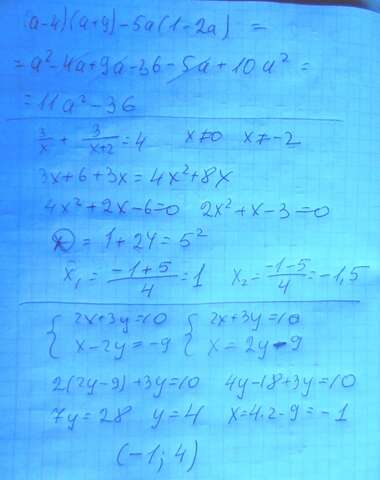 (a-4)(a+9)-5a(1-2a) =
= a²-4a+9a-36-5a+10a² =
= 11a²-36
3/x + 3/(x+2) = 4 x≠0 x≠-2
3x+6+3x = 4x²+8x
4x²+2x-6=0 2x²+x-3=0
= 1+24 = 5²
x₁ = (-1+5)/4 = 1 x₂ = (-1-5)/4 = -1,5
{2x+3y=10 {2x+3y=10
{x-2y=-9 {x=2y-9
2(2y-9)+3y=10 4y-18+3y=10
7y=28 y=4 x=4·2-9=-1
(-1; 4)